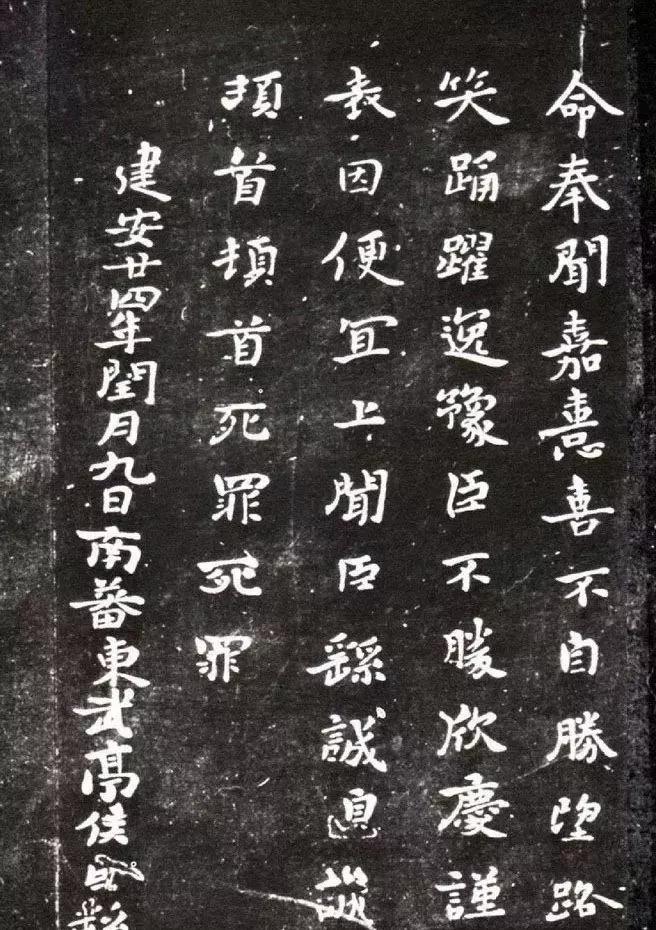 命奉聞嘉憙喜不自勝望路
笑踊躍逸豫臣不勝欣慶謹
表因便宜上聞臣繇誠惶誠
頓首頓首死罪死罪
建安廿四年閏月九日南蕃東武亭侯臣繇